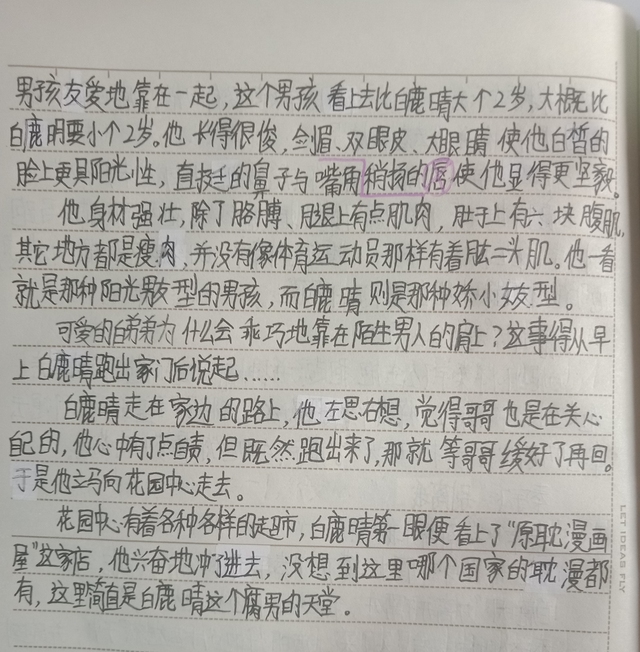 男孩友爱地靠在一起，这个男孩看上去比白鹿晴大个2岁，大概比
白鹿明要小个2岁。他长得很俊，剑眉、双眼皮、大眼睛使他白皙的
脸上更具阳光性，直挺的鼻子与嘴角稍扬的唇使他显得更坚毅。
他身材强壮，除了胳膊、腿上有点肌肉，肚子上有六块腹肌，
其它地方都是瘦肉，并没有像体育运动员那样有着肱二头肌。他一看
就是那种阳光男友型的男孩，而白鹿晴则是那种娇小女友型。
可爱的白弟弟为什么会乖巧地靠在陌生男人的肩上？这事得从早
上白鹿晴跑出家门后说起……
白鹿晴走在家边的路上，他左思右想，觉得哥哥也是在关心
自己的，他心中有了点自责，但既然跑出来了，那就等哥哥缓好了再回。
于是他立马向花园中心走去。
花园中心有着各种各样的超市，白鹿晴第一眼便看上了“原耽漫画
屋”这家店，他兴奋地冲了进去，没想到这里哪个国家的耽漫都
有，这里简直是白鹿晴这个腐男的天堂。
LET IDEAS FLY